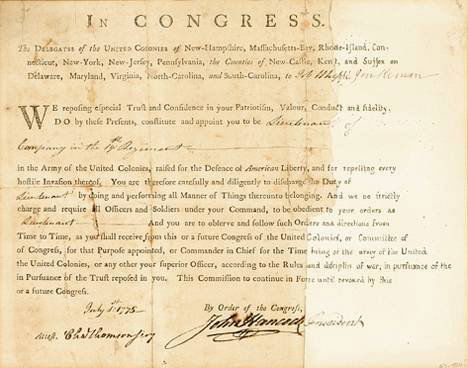 IN CONGRESS.
The DELEGATES of the UNITED COLONIES of New-Hampshire, Massachusetts-Bay, Rhode-Island, Con-
necticut, New-York, New-Jersey, Pennsylvania, the Counties of New-Castle, Kent, and Sussex on
Delaware, Maryland, Virginia, North-Carolina, and South-Carolina, to Gentleman
WE reposing especial Trust and Confidence in your Patriotism, Valour, Conduct and fidelity,
DO by these Presents, constitute and appoint you to be Lieutenant of
Company in the Regiment
in the Army of the United Colonies, raised for the Defence of American Liberty, and for repelling every
hostile Invasion thereof. You are therefore carefully and diligently to discharge the Duty of
Lieutenant by doing and performing all Manner of Things thereunto belonging. And we do strictly
charge and require all Officers and Soldiers under your Command, to be obedient to your orders as
Lieutenant And you are to observe and follow such Orders and directions from
Time to Time, as you shall receive from this or a future Congress of the United Colonies, or Committee of
of Congress, for that Purpose appointed, or Commander in Chief for the Time being of the army of the United
the United Colonies, or any other your superior Officer, according to the Rules and discipline of war, in pursuance of the
in Pursuance of the Trust reposed in you. This Commission to continue in Force until revoked by this
or a future Congress.
July 1st 1775 By Order of the Congress,
John Hancock President
Attest. Cha Thomson secy